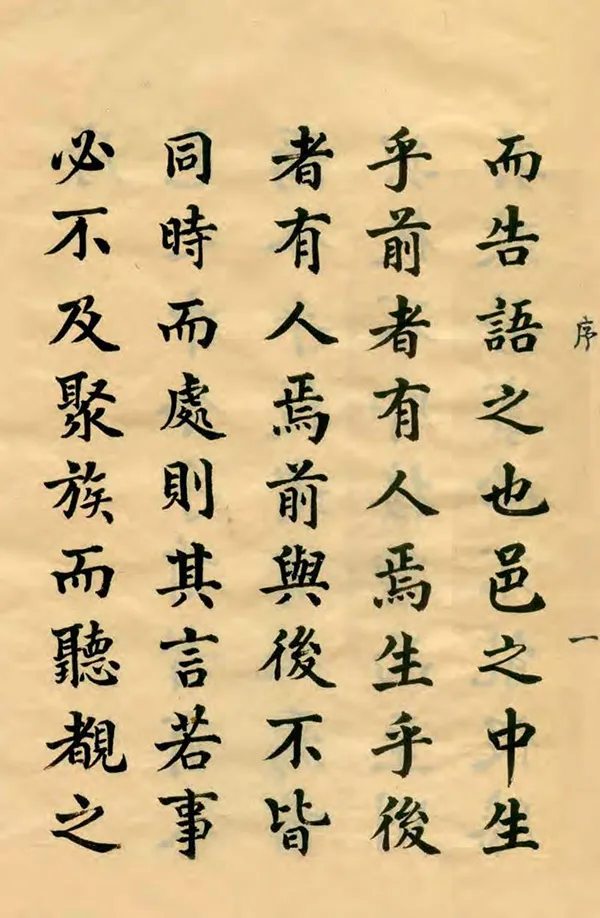 序
一
而告語之也邑之中生
乎前者有人焉生乎後
者有人焉前與後不皆
同時而處則其言若事
必不及聚族而聽覩之